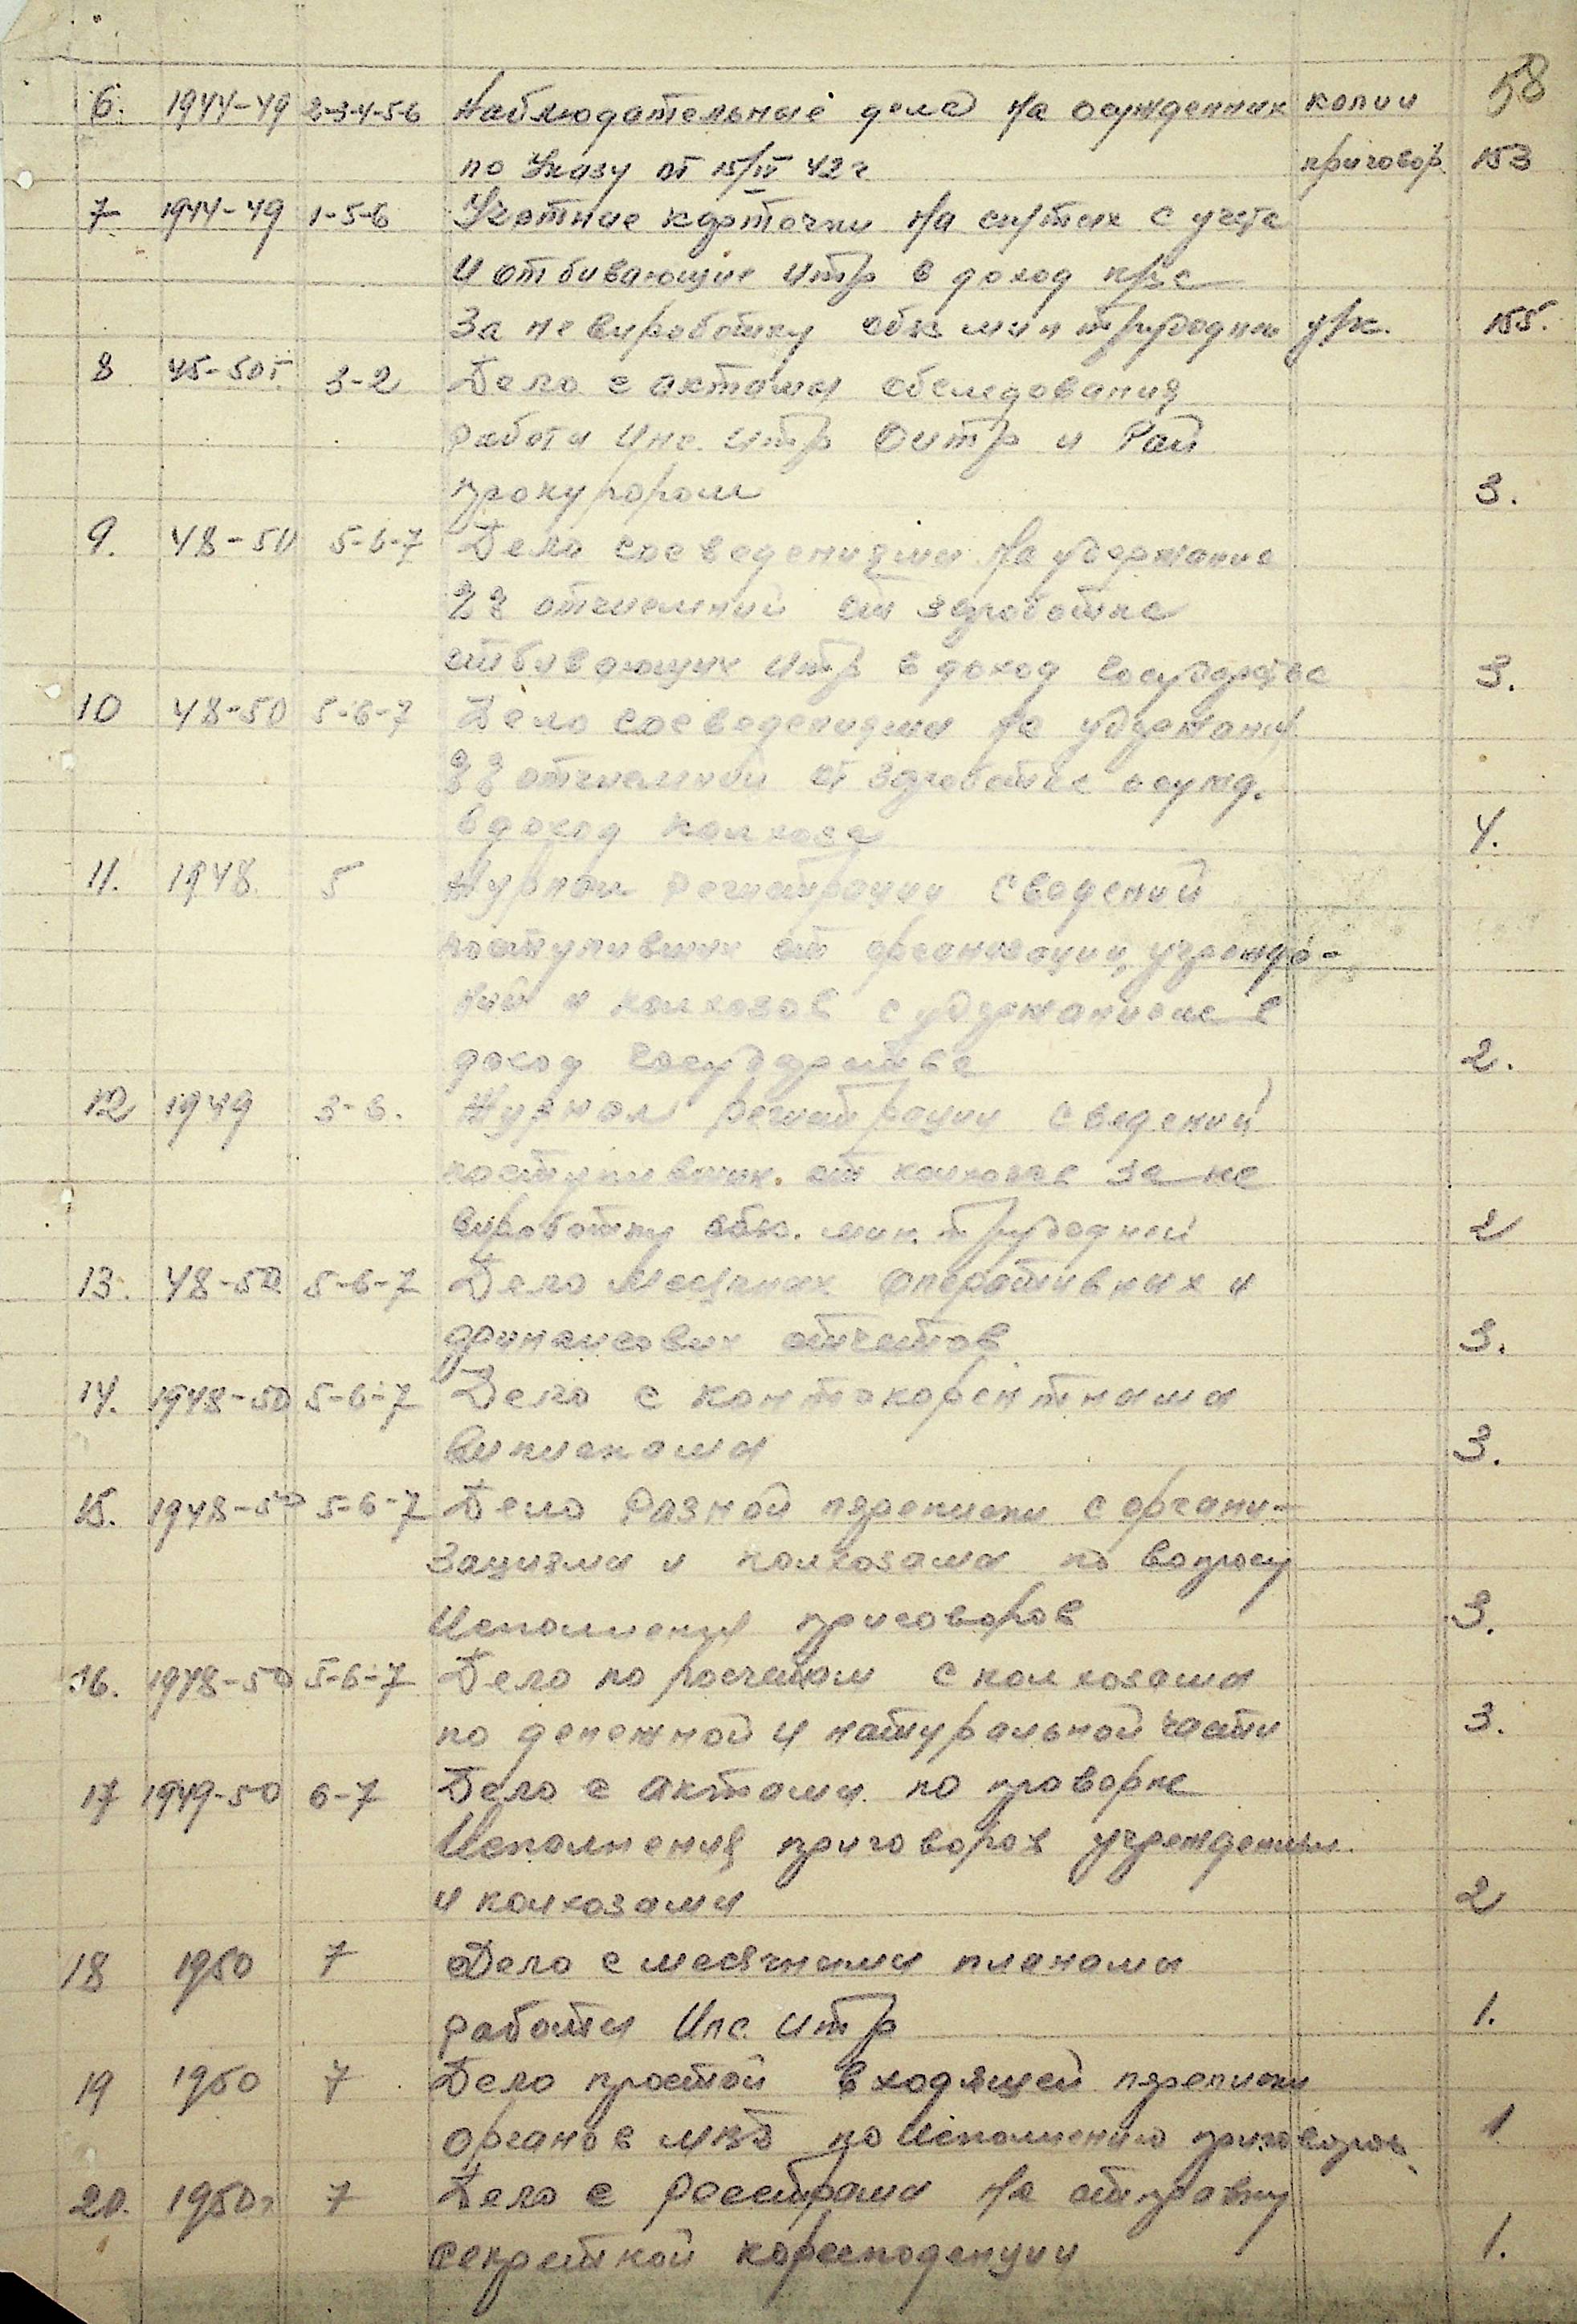 58
6. 1944-49 2-3-4-5-6 Наблюдательные дела на осужденних копии
по Указу от 15/IV 42 г. приговор. 153
7 1944-49 1-5-6 Учетние карточки на снятих с учета
и отбивающие итр в доход
За не виработку обяз мин трудодней у/к. 155.
8 45-50 г. 3-2 Дело с актами обследования
работи Инс. итр Оитр и Рай
прокурором 3.
9. 48-50 5-6-7 Дело сосведениями на удержание
%% отчислений от заработка
отбивающих итр в доход государства 3.
10 48-50 5-6-7 Дело сосведениями на удержания
%% отчислений от заработка осужд.
в доход колхоза 4.
11. 1948 5 Журнал регистрации сведений
поступивших от организаций, учрежде-
ний и колхозов с удержанием в
доход государства 2.
12 1949 Журнал регистрации сведений
поступивших. от колхозов за не
виработку обяз. мин. трудодней 2
13. 48-50 5-6-7 Дело месячних оперативних и
финансових отчетов 3.
14. 1948-50 5-6-7 Дело с контокорентними
виписками 3.
15. 1948-50 5-6-7 Дело разной переписки с органи-
зациями и колхозами по вопросу
Исполнения приговоров 3.
16. 1948-50 5-6-7 Дело по росчетам с колхозами
по денежной и натуральной части 3.
17 1949-50 6-7 Дело с актами по проверке
Исполнения приговоров учреждениями
и колхозами 2
18 1950 7 Дело с месячними планами
работи Инс. итр 1.
19 1950 7 Дело простой входящей переписки
Органов МВД по Исполнению приговоров 1
20. 1950 г. 7 Дело с Реестрами на отправку
секретной коресподенции 1.